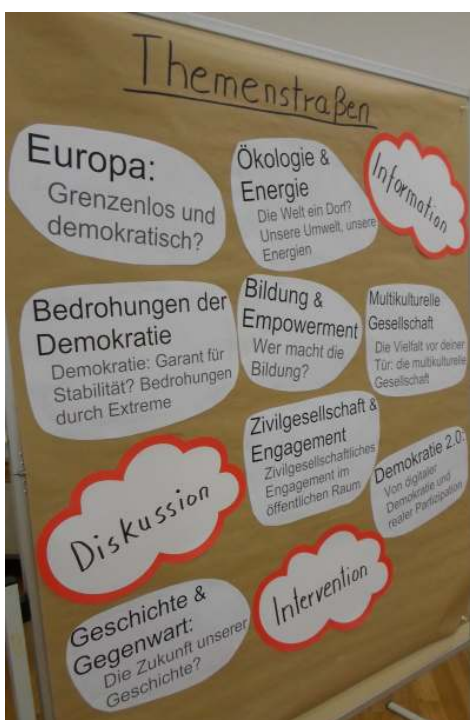 Themenstraßen
Europa:
Grenzenlos und
demokratisch?
Ökologie &
Energie
Die Welt ein Dorf?
Unsere Umwelt, unsere
Energien
Information
Bedrohungen der
Demokratie
Demokratie: Garant für
Stabilität? Bedrohungen
durch Extreme
Bildung &
Empowerment
Wer macht die
Bildung?
Multikulturelle
Gesellschaft
Die Vielfalt vor deiner
Tür: die multikulturelle
Gesellschaft
Diskussion
Zivilgesellschaft &
Engagement
Zivilgesellschaftliches
Engagement im
öffentlichen Raum
Demokratie 2.0:
Von digitaler
Demokratie und
realer Partizipation
Geschichte &
Gegenwart:
Die Zukunft unserer
Geschichte?
Intervention